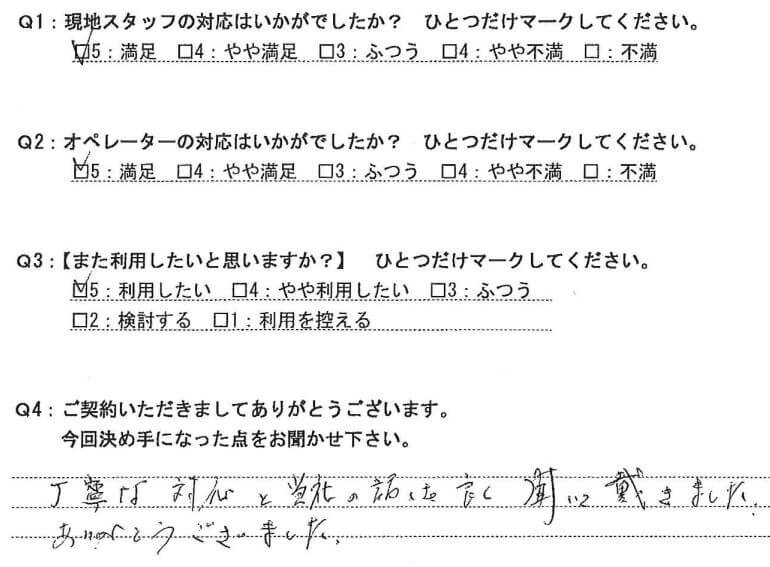 Q1：現地スタッフの対応はいかがでしたか？　ひとつだけマークしてください。
☑5：満足　□4：やや満足　□3：ふつう　□4：やや不満　□：不満
Q2：オペレーターの対応はいかがでしたか？　ひとつだけマークしてください。
☑5：満足　□4：やや満足　□3：ふつう　□4：やや不満　□：不満
Q3：【また利用したいと思いますか？】　ひとつだけマークしてください。
☑5：利用したい　□4：やや利用したい　□3：ふつう
□2：検討する　□1：利用を控える
Q4：ご契約いただきましてありがとうございます。
今回決め手になった点をお聞かせ下さい。
丁寧な対応と当社の話を良く聞いて戴きました。
ありがとうございました。